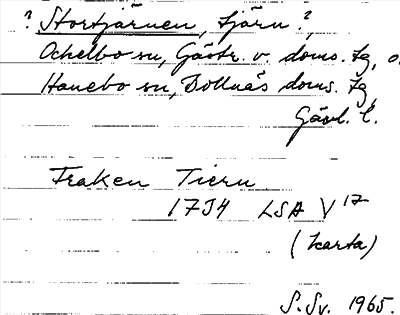 ? Stortjärnen, tjärn?,
Ockelbo sn, Gästr. v. doms. tg, o.
Hanebo sn, Bollnäs doms. tg
Gävl. l.
Fraken Tiern
1734 LSA V 17
(karta)
S. Sv. 1965.